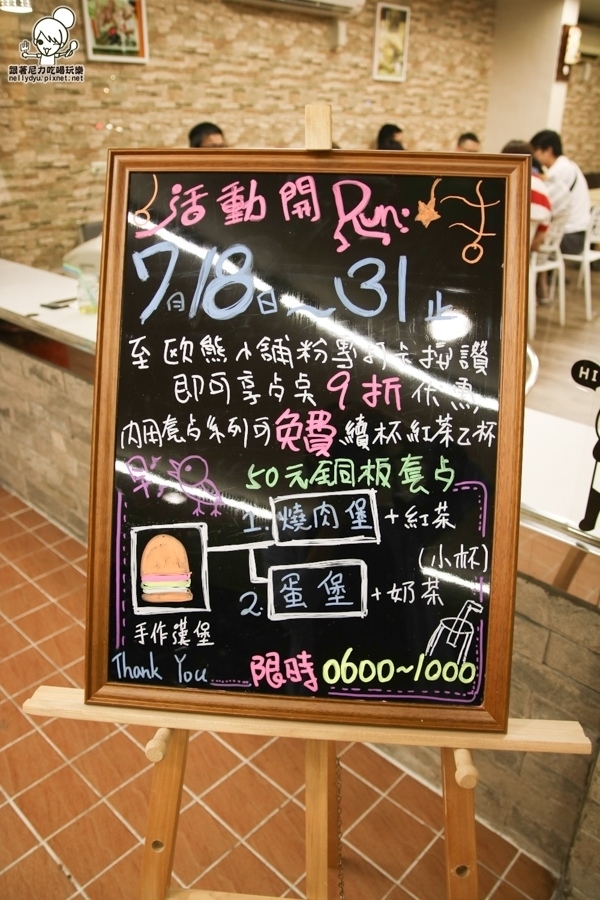 跟著尼力吃喝玩樂
nellydyu.pixnet.net
活動開Run!
7月18日~31止
至歐熊小舖粉專打卡按讚
即可享占桌9折优惠
內用套占系列可免費續杯紅茶乙杯
50元銅板套占
1.燒肉堡+紅茶
(小杯)
2.蛋堡+奶茶
手作漢堡
Thank You
限時0600~1000
HI